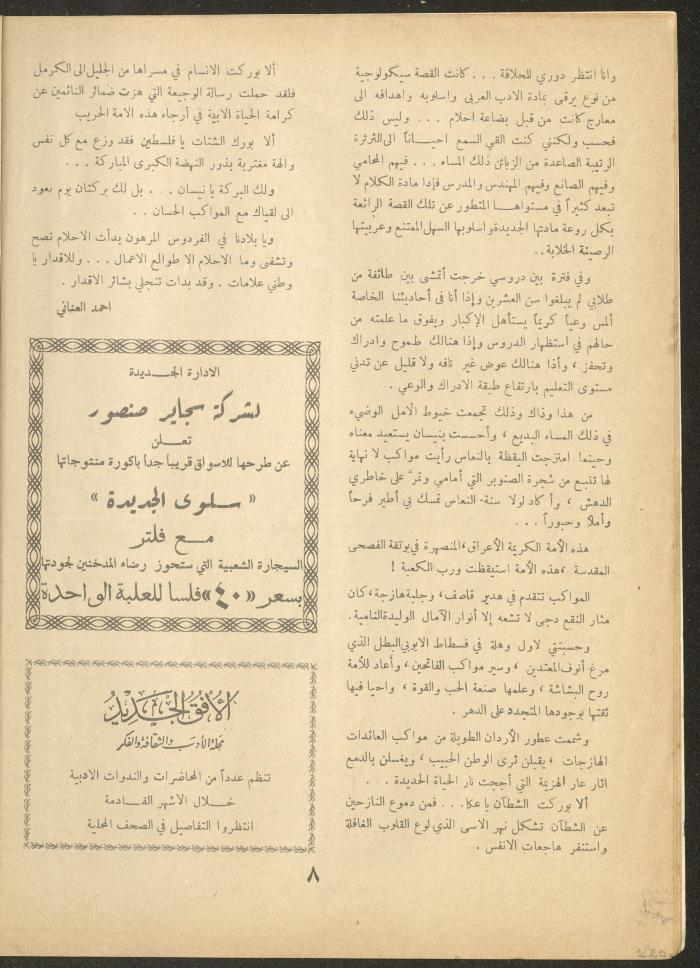 وانا انتظر دوري للحلاقة . . . كانت القصة سيكولوجية
من نوع يرقى بمادة الادب العربى واسلوبه واهدافه الى
معارج كانت من قبل بضاعة احلام . . . وليس ذلك
فحسب ولكنني كنت القي السمع احيـــاناً الى الثرثرة
الرتيبة الصاعدة من الزبائن ذلك المساء . . فيهم المحامي
وفيهم الصانع وفيهم المهندس والمدرس فإذا مادة الكلام لا
تبعد كثيراً في مستواهـــا المتطور عن تلك القصة الرائعة
بكل روعة مادتها الجديدة واسلوبها السهل الممتنع وعربيتها
الرصينة الخلابة . .
وفي فترة بين دروسي خرجت أتمشى بين طائفة من
طلابي لم يبلغوا سن العشرين وإذا أنا فى أحاديثنا الخاصة
ألمس وعياً كريماً يستأهل الإكبار ويفوق ما علمته من
حالهم في استظهار الدروس وإذا هنالك طموح وادراك
وتحفز ، وأذا هنالك عوض غير تافه ولا قليل عن تدني
مستوى التعليم بارتفاع طبقة الادراك والوعي .
من هذا وذاك وذلك تجمعت خيوط الأمل الوضيء
في ذلك المساء البديع ، وأحسست بنيسان يستعيد معناه
وحينما امتزجت اليقظة بالنعاس رأيت مواكب لا نهاية
لها تنبع من شجرة الصنوبر التي أمامي وتمرّ على خاطري
الدهش ، وأكاد لولا سنة- النعاس تمسك بي أطير فرحاً
وأملاً وحبوراً . . .
هذه الأمة الكريمة الأعراق ، المنصهرة في بوتقة الفصحى
المقدسة ، هذه الأمة استيقظت ورب الكعبة !
المواكب تتقدم في هدير قاصف ، وجلبة هازجة ، كان
مثار النقع دجى لا تشعه إلا أنوار الآمال الوليدة النامية .
وحسبتني لاول وهلة في فسطاط الايوبي البطل الذي
مرغ أنوف المعتدين ، وسير مواكب الفاتحين ، وأعاد للأمة
روح البشاشة ، وعلمها صنعة الحب والقوة ، واحيا فيها
ثقتها بوجودها المتجدد على الدهر .
وشممت عطور الأردان الطويلة من مواكب العائدات
الهازجات ، يقبلن ثرى الوطن الحبيب ، ويغسلن بالدمع
اثار عار الهزيمة التي أججت نار الحياة الجديدة . . .
ألا بوركت الشطآن يا عكا . . . فمن دموع النازحين
عن الشطآن تشكل نهر الاسى الذي لوع القلوب الغافلة
واستنفر هاجعات الانفس .
ألا بوركت الانسام في مسراها من الجليل الى الكرمل
فلقد حملت رسالة الوجيعة التي هزت ضمائر النائمين عن
كرامة الحياة الابية في أرجاء هذه الامة الحريب
ألا بورك الشتات يا فلسطين فقد وزع مع كل نفس
والهة مغتربة بذور النهضة الكبرى المباركة . . .
ولك البركة يا نيسان . . . بل لك بركتان يوم نعود
الى لقياك مع المواكب الحسان . .
ويا بلادنا في الفردوس المرهون بدأت الاحلام تصح
وتشفى وما الاحلام الا طوالع الاعمال . . . وللاقدار يا
وطني علامات . وقد بدات تنجلي بشائر الاقدار .
احمد العناني
الادارة الجـــديدة
لشركة سجاير صنصور
تعلن
عن طرحها للاسواق قريباً جداً باكورة منتوجاتها
« سلوى الجديدة »
مــع فلتر
السيجارة الشعبية التي ستحوز رضاء المدخنين لجودتها
بسعر « ٤٠ » فلسا للعلبة الواحدة
الأفق الجديد
مجلة الأدب والثقافة والفكر
تنظم عدداً من المحاضرات والندوات الادبية
خـــلال الاشهر القـــادمة
انتظروا التفاصيل في الصحف المحلية
٨